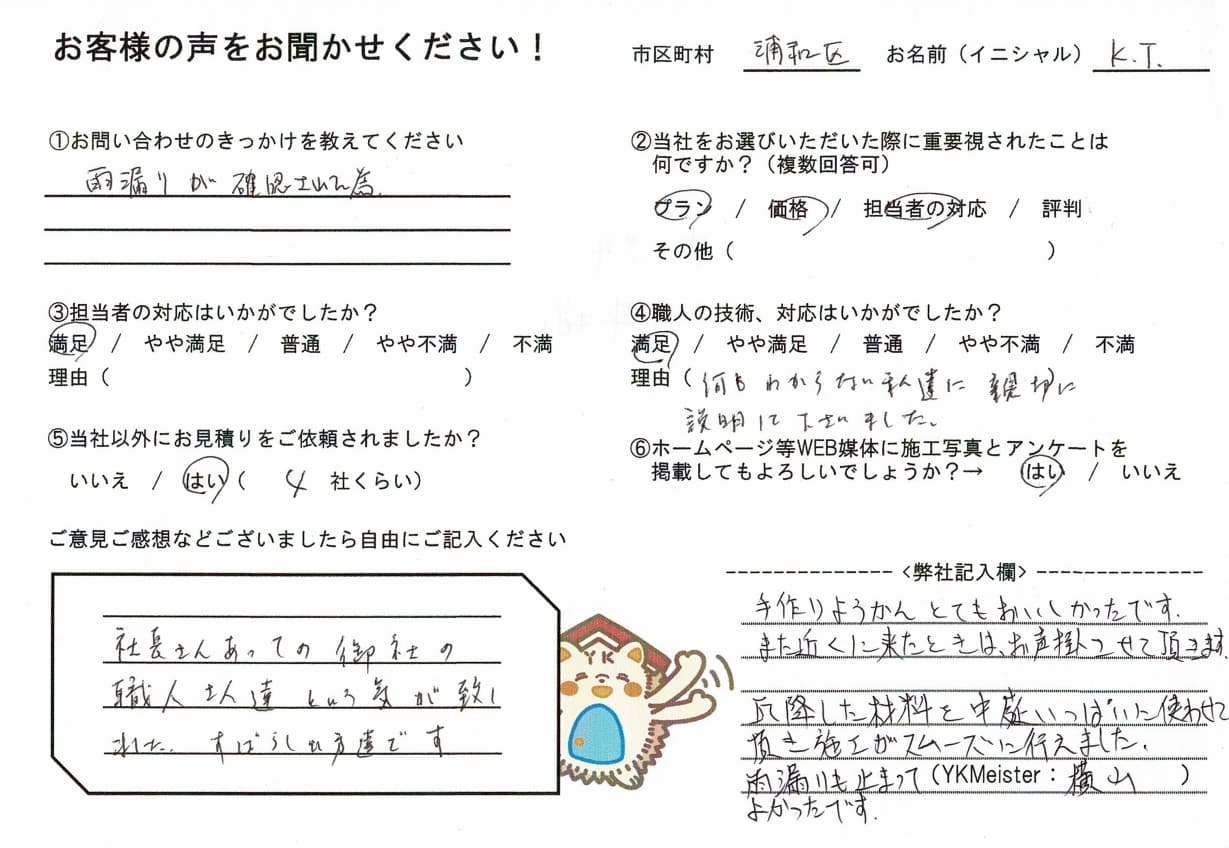 お客様の声をお聞かせください！
市区町村 浦和区 お名前（イニシャル） K.T.
①お問い合わせのきっかけを教えてください
雨漏りが確認された為
②当社をお選びいただいた際に重要視されたことは
何ですか？（複数回答可）
プラン / 価格 / 担当者の対応 / 評判
その他（ ）
③担当者の対応はいかがでしたか？
満足 / やや満足 / 普通 / やや不満 / 不満
理由（ ）
④職人の技術、対応はいかがでしたか？
満足 / やや満足 / 普通 / やや不満 / 不満
理由（何もわからない私達に親切に
説明して下さいました。
⑤当社以外にお見積りをご依頼されましたか？
いいえ / はい（ 4 社くらい）
⑥ホームページ等WEB媒体に施工写真とアンケートを
掲載してもよろしいでしょうか？→ はい / いいえ
ご意見ご感想などございましたら自由にご記入ください
社長さんあっての御社の
職人さん達という気が致し
ました。すばらしい方達です
YK
<弊社記入欄>
手作りようかんとてもおいしかったです.
また近くに来たときは、お声掛けさせて頂きます
瓦降した材料を中庭いっぱいに使わせて
頂き施工がスムーズに行えました.
雨漏りも止まって（YKMeister：横山 ）
よかったです.